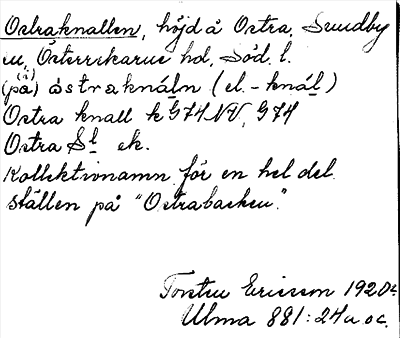 Ostraknallen, höjd å Ostra, Sundby
sn, Österrekarne hd, Söd. l.
(på) åstraknáln (el. -knál)
(i)
Ostra knall k G74 NV, G74
Ostra Sl ek.
Kollektivnamn för en hel del
ställen på "Ostrabacken".
Torsten Ericsson 1920
Ulma 881:24a oc.